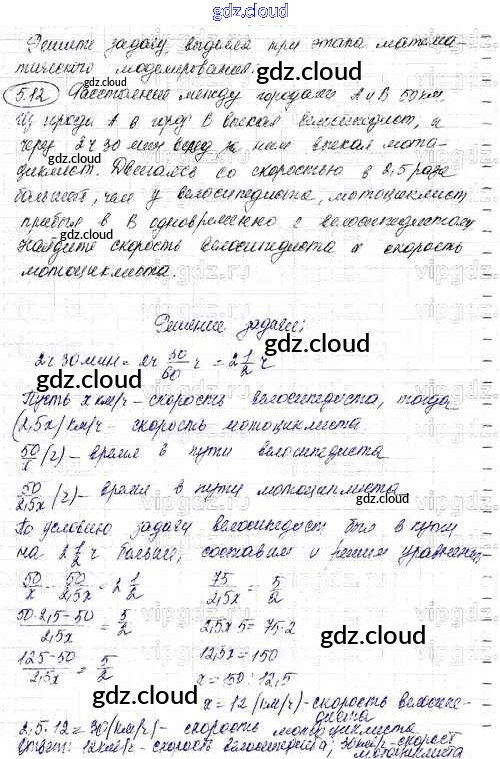 gdz.cloud
Решите задачу, выделяя три этапа матема-
тического моделирования:
gdz.cloud
5.12 Расстояние между городами А и В 50 км.
Из города А в город В выехал велосипедист, а
через 2 ч 30 мин вслед за ним выехал мото-
циклист. Двигаясь со скоростью в 2,5 раза
большей, чем у велосипедиста, мотоциклист
прибыл в В одновременно с велосипедистом.
Найдите скорость велосипедиста и скорость
мотоциклиста.
gdz.cloud
Решение задачи:
2ч 30мин = 2ч 30/60 ч = 2 1/2 ч
Пусть x км/ч - скорость велосипедиста, тогда
(2,5x) км/ч - скорость мотоциклиста
50/x (ч) - время в пути велосипедиста
50/2,5x (ч) - время в пути мотоциклиста
По условию задачи велосипедист был в пути
на 2 1/2 ч больше, составим и решим уравнение:
50/x - 50/2,5x = 2 1/2 75/2,5x = 5/2
50·2,5-50/2,5x = 5/2 2,5x·5 = 75·2
125-50/2,5x = 5/2 12,5x = 150
x = 150 : 12,5
x = 12 (км/ч) - скорость велосипе-
диста
2,5·12 = 30 (км/ч) - скорость мотоциклиста
Ответ: 12 км/ч - скорость велосипедиста; 30 км/ч - скорость
мотоциклиста
gdz.cloud